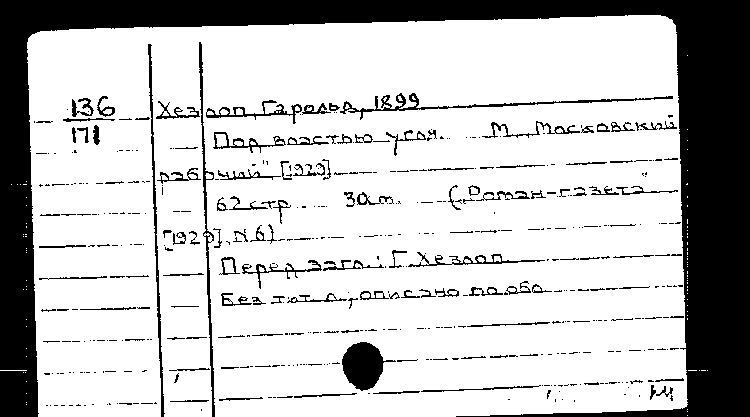 136
171
Хезлоп, Гарольд, 1899
Под властью угля. М., „Московский
рабочий" [1929]
62 стр. 30 см. („Роман-газета"
[1929], N 6)
Перед загл.: Г. Хезлоп
Без тит. л.; описано по обл